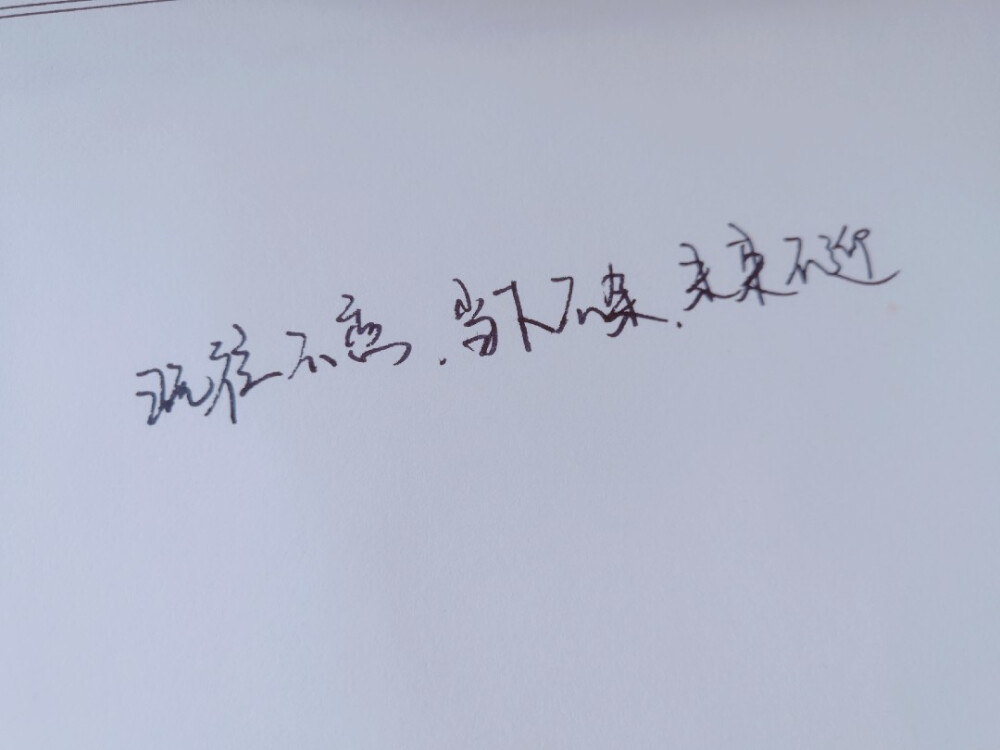 既往不恋，当下不杂，未来不迎